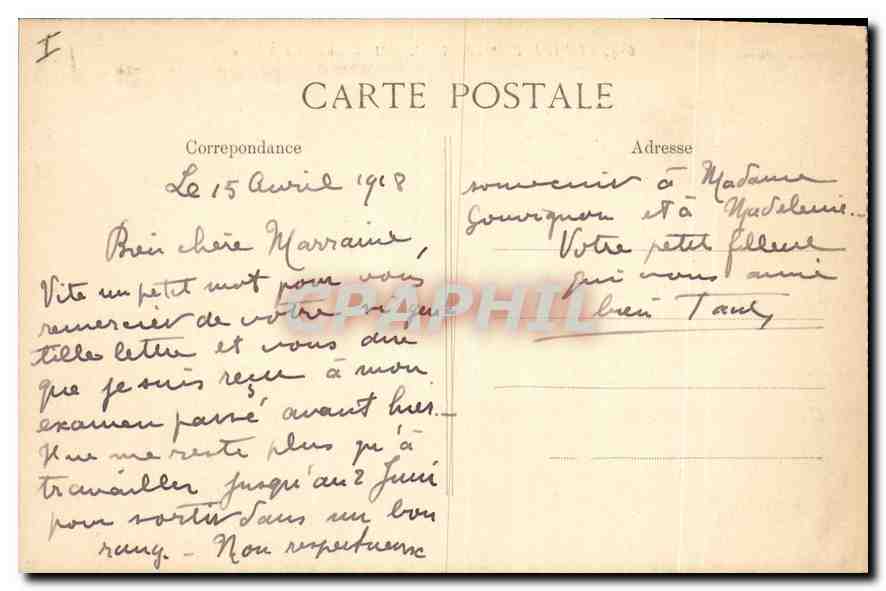 I
CARTE POSTALE
Correpondance
Adresse
Le 15 Avril 1918
Bien chère Marraine,
Vite un petit mot pour vous
remercier de votre si gen
tille lettre et vous dire
que je suis reçu à mon
examen passé avant hier._
Il ne me reste plus qu'à
travailler jusqu'au 2 Juin
pour sortir dans un bon
rang. _ Mon respectueux
souvenir à Madame
Gouvignon et à Madeleine._
Votre petit filleul
qui vous aime
bien
CPAPHIL